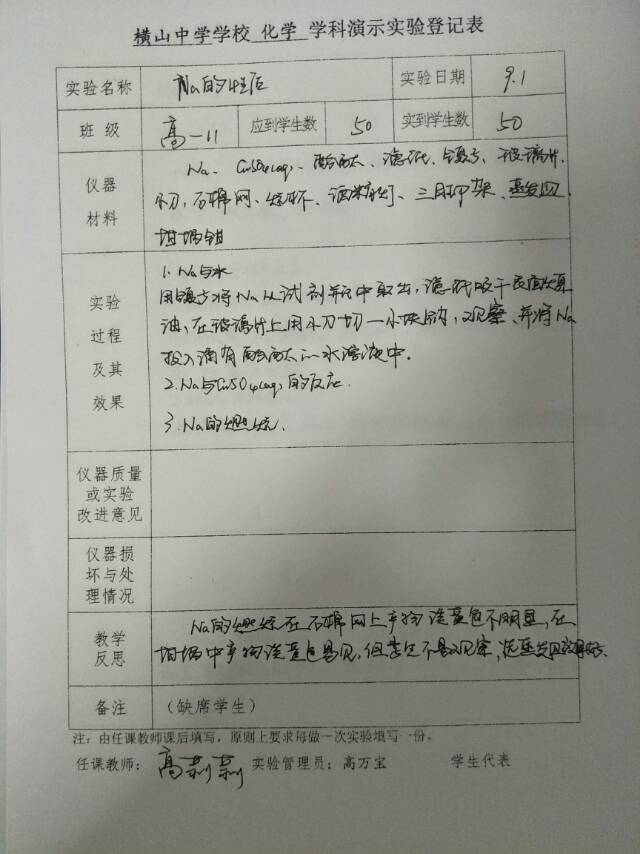 横山中学学校 化学 学科演示实验登记表
实验名称 Na的性质 实验日期 9.1
班 级 高一11 应到学生数 50 实到学生数 50
仪器材料
Na、CuSO4(aq)、酚酞、滤纸、镊子、玻璃片、
小刀、石棉网、烧杯、酒精灯、三脚架、蒸发皿
坩埚钳
实验过程及其效果
1. Na与水
用镊子将Na从试剂瓶中取出,滤纸吸干表面煤
油,在玻璃片上用小刀切一小块钠,观察、并将Na
投入滴有酚酞的水溶液中.
2. Na与CuSO4(aq)的反应.
3. Na的燃烧.
仪器质量
或实验
改进意见
仪器损
坏与处
理情况
教学
反思
Na的燃烧在石棉网上产物淡黄色不明显,在
坩埚中产物淡黄色易见,但学生不易观察,
备注 (缺席学生)
注:由任课教师课后填写,原则上要求每做一次实验填写一份。
任课教师:高莉莉 实验管理员:高万宝 学生代表